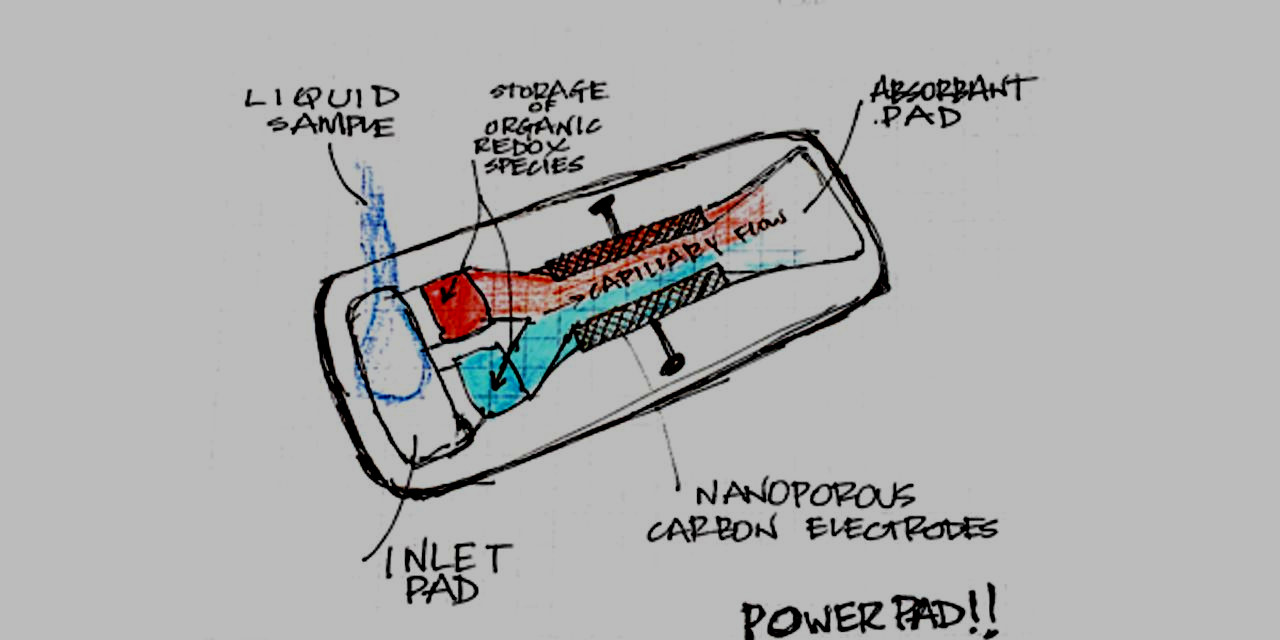 LIQUID
SAMPLE
STORAGE
OF
ORGANIC
REDOX
SPECIES
ABSORBANT
PAD
>CAPILLARY FLOW
NANOPOROUS
CARBON ELECTRODES
INLET
PAD
POWERPAD!!